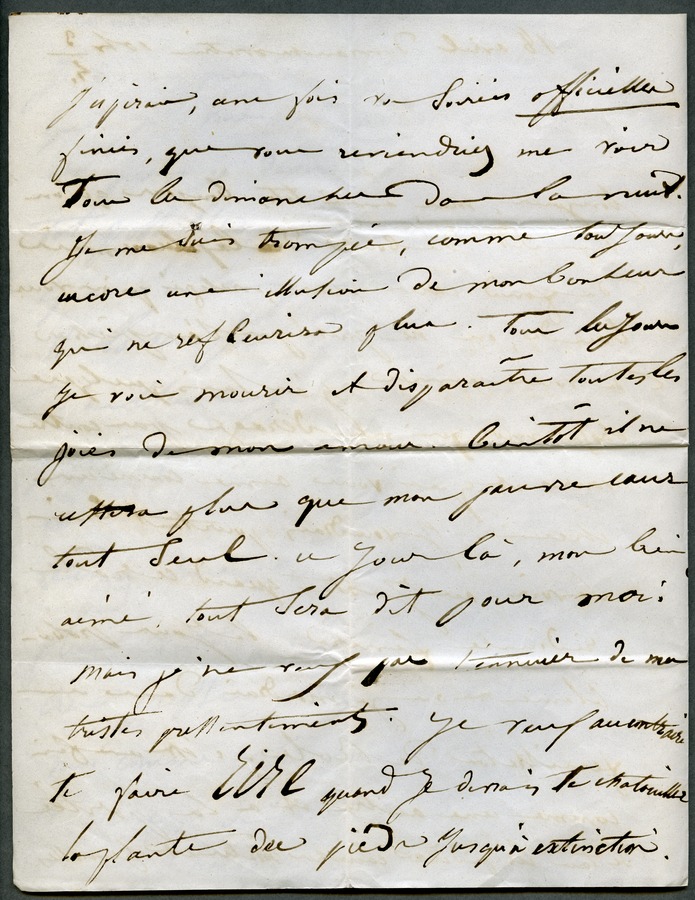 J'espérais, une fois vos Soirées officielles
finies, que vous reviendriez me voir
Tous les dimanches dans la nuit.
Je me suis trompée, comme toujours,
encore une illusion de mon bonheur
qui ne refleurira plus. Tous les Jours
je vois mourir et disparaître toutes les
joies de mon amour. Bientôt il ne
restera plus que mon pauvre cœur
tout Seul. Ce Jour là, mon bien
aimé, tout Sera dit pour moi.
Mais je ne veux pas t'ennuier de mes
tristes pressentiments. Je veux au contraire
te faire RIRE quand je devrais te chatouiller
la plante des pieds jusqu'à extinction.